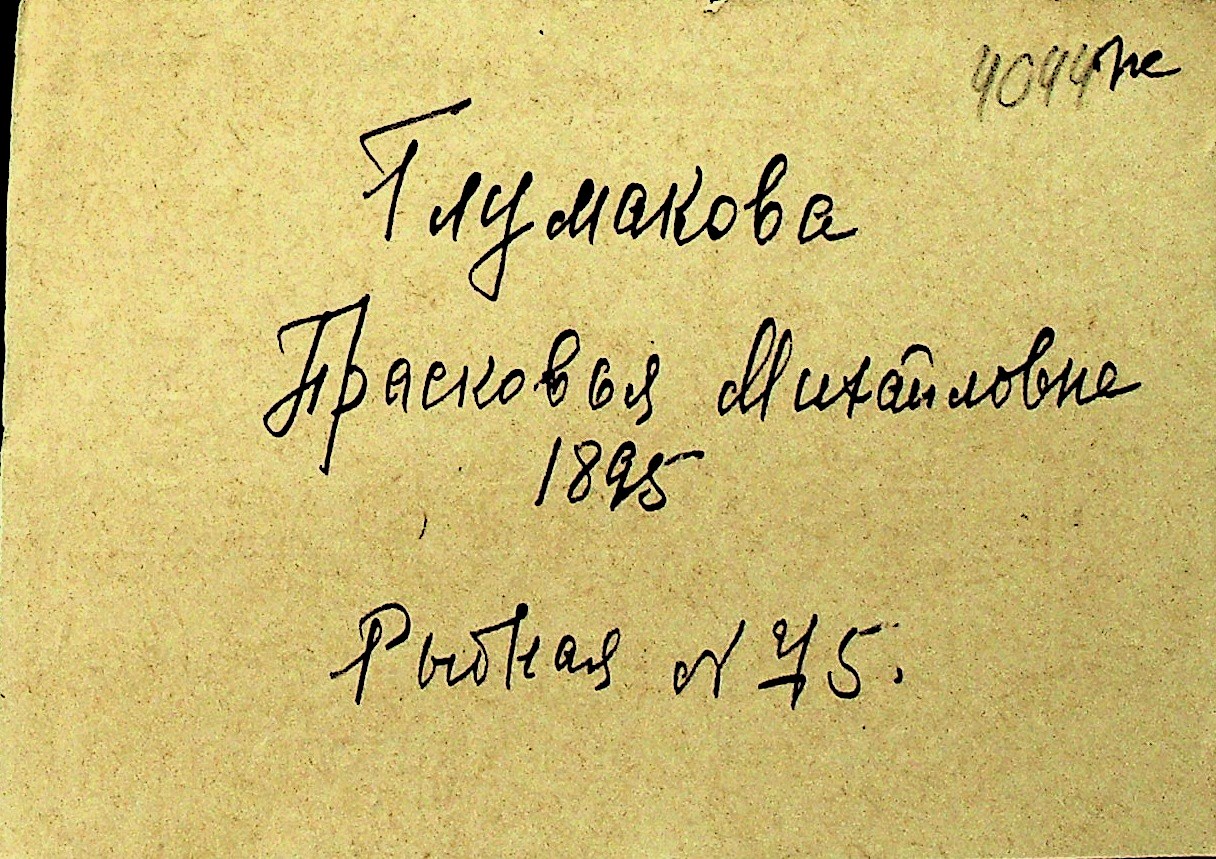 Глумакова
Прасковья Михайловна
1895
Рыбная N 45.